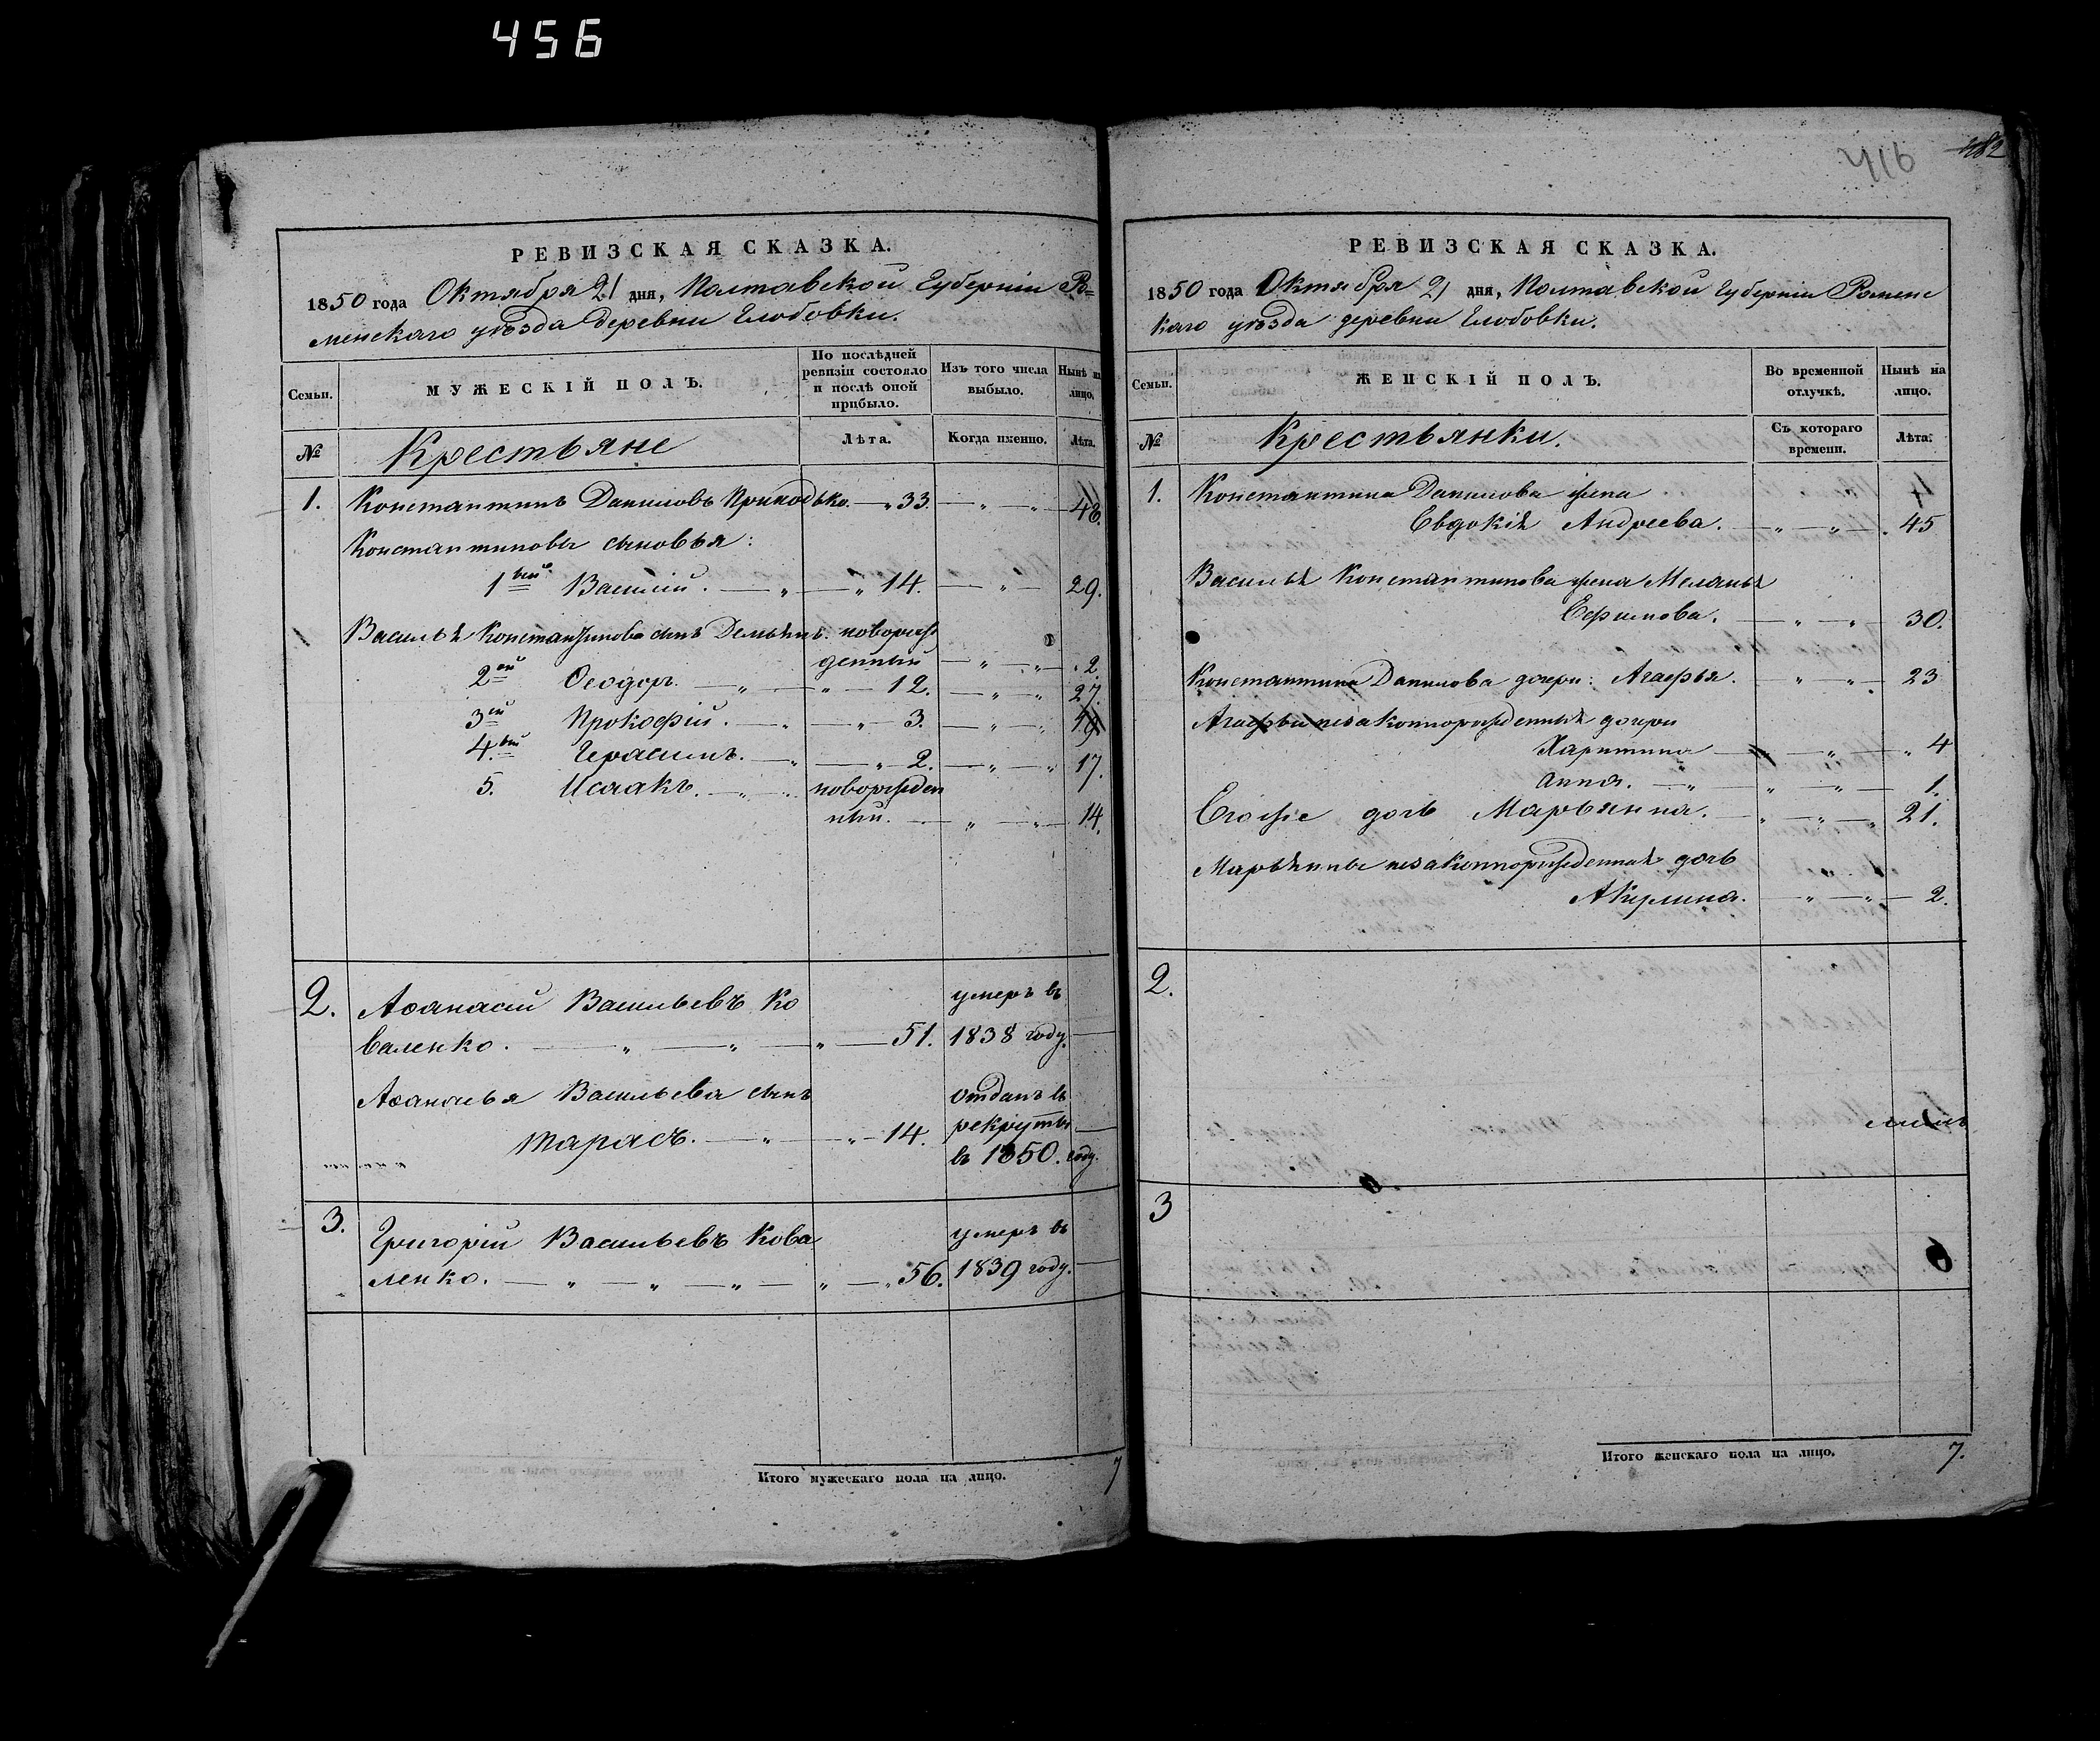 456
РЕВИЗСКАЯ СКАЗКА.
1850 года Октября 21 дня, Полтавской Губерніи Ро=
менскаго уѣзда деревни Глобовки.
Семьи.
МУЖЕСКІЙ ПОЛЪ.
По послѣдней ревизіи состояло и послѣ оной прибыло.
Изъ того числа выбыло.
Нынѣ на лицо.
№
Крестьяне
Лѣта.
Когда именно.
Лѣта.
1. Константинъ Даниловъ Приходько. — „ 33. — „ — „ — 48.
Константиновы сыновья:
1вый Василій. — „ — „ 14. — „ — 29.
Василья Константинова сынъ Демьянъ. новорож
денный — „ — „ — 2.
2ой Ѳеодоръ. — „ — „ — 12. — „ — „ 27.
3ій Прокофій. — „ — „ — 3. — „ — „
4.тый Герасимъ. — „ — „ — 2. — „ — „ 17.
5. Исаакъ. — „ — „ новорожден
ный. — „ — „ — 14.
2. Аѳанасій Васильевъ Ко
умеръ въ
валенко. — „ — „ — „ — 51. 1838 году. —
Аѳанасья Васильева сынъ
отданъ въ
Тарасъ. — „ — „ — 14. рекруты —
въ 1850. году.
3. Григорій Васильевъ Кова
умеръ въ
ленко. — „ — „ — „ — „ — „ 56. 1839 году. —
Итого мужескаго пола на лицо. 7
416
482
РЕВИЗСКАЯ СКАЗКА.
1850 года Октября 21 дня, Полтавской Губерніи Роменс
каго уѣзда деревни Глобовки.
Семьи.
ЖЕНСКІЙ ПОЛЪ.
Во временной отлучкѣ.
Нынѣ на лицо.
№
Крестьянки.
Съ котораго времени.
Лѣта.
1. Константина Данилова жена
Евдокія Андреева. — „ — „ — 45
Василья Константинова жена Меланья
Ефимова. — „ — „ — 30.
Константина Данилова дочери: Агафья. — „ — „ — 23
Агафьи незаконнорожденныя дочери
Харитина — „ — „ — „ 4
Анна. — „ — „ — „ — 1.
Егоже дочь Марьянна. — „ — „ — „ 21.
Марьянны незаконнорожденная дочь
Акулина. — „ — „ — 2.
2.
3
Итого женскаго пола на лицо. 7.